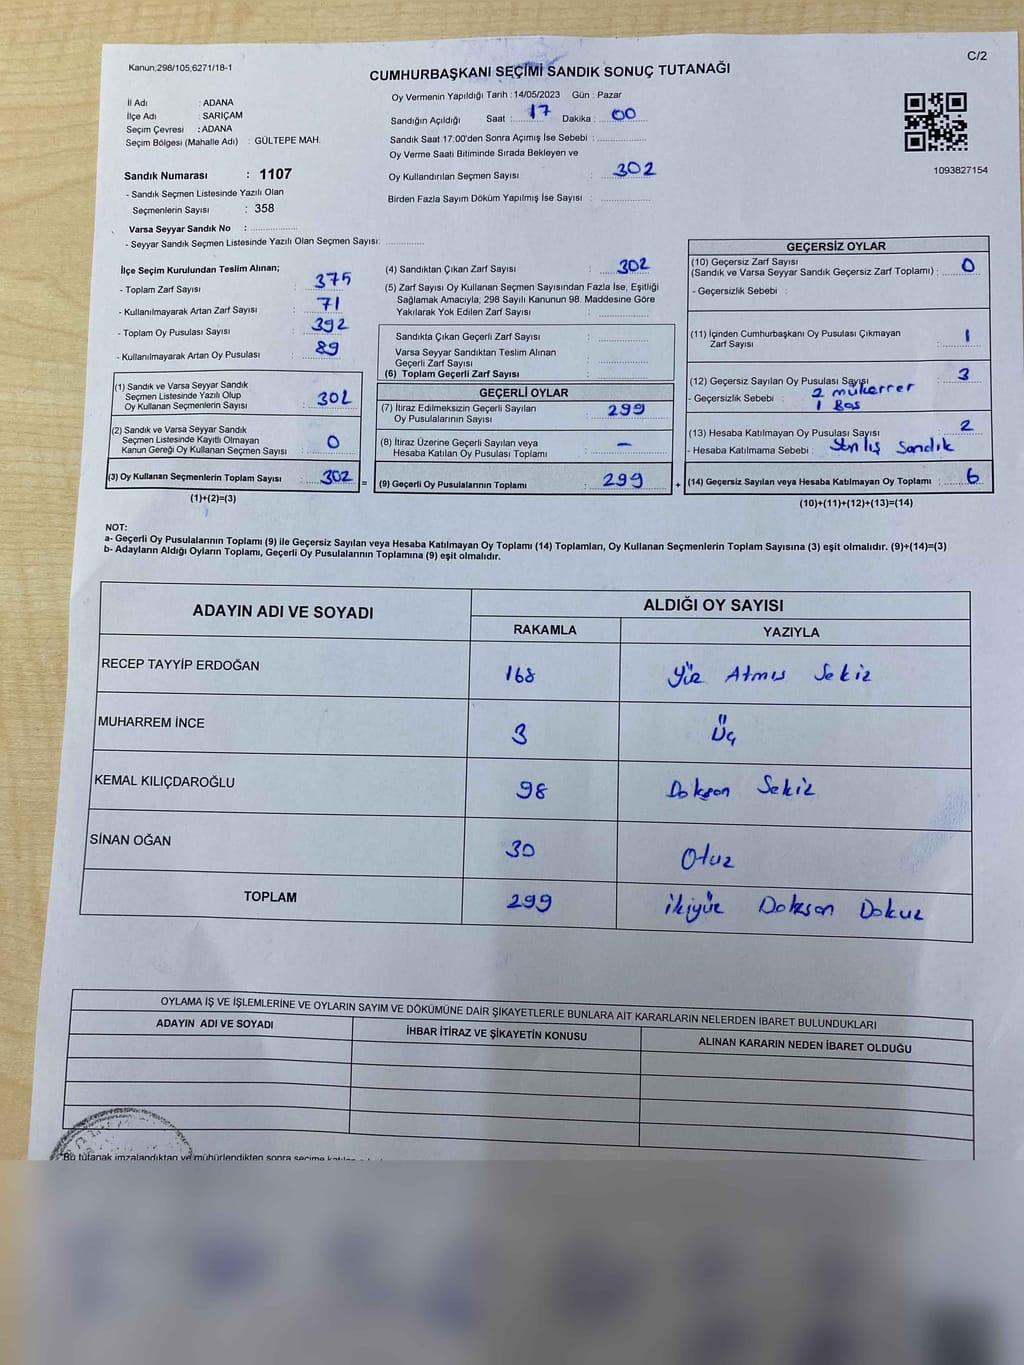 Kanun,298/105,6271/18-1
C/2
CUMHURBAŞKANI SEÇİMİ SANDIK SONUÇ TUTANAĞI
İl Adı : ADANA
İlçe Adı : SARIÇAM
Seçim Çevresi : ADANA
Seçim Bölgesi (Mahalle Adı) : GÜLTEPE MAH.
Sandık Numarası : 1107
- Sandık Seçmen Listesinde Yazılı Olan
Seçmenlerin Sayısı : 358
Varsa Seyyar Sandık No :
- Seyyar Sandık Seçmen Listesinde Yazılı Olan Seçmen Sayısı:
Oy Vermenin Yapıldığı Tarih : 14/05/2023 Gün : Pazar
Sandığın Açıldığı Saat : 17 Dakika : 00
Sandık Saat 17:00'den Sonra Açımış İse Sebebi :
Oy Verme Saati Bitiminde Sırada Bekleyen ve
Oy Kullandırılan Seçmen Sayısı : 302
Birden Fazla Sayım Döküm Yapılmış İse Sayısı :
1093827154
İlçe Seçim Kurulundan Teslim Alınan;
- Toplam Zarf Sayısı : 375
- Kullanılmayarak Artan Zarf Sayısı : 71
- Toplam Oy Pusulası Sayısı : 392
- Kullanılmayarak Artan Oy Pusulası : 89
(1) Sandık ve Varsa Seyyar Sandık
Seçmen Listesinde Yazılı Olup
Oy Kullanan Seçmenlerin Sayısı : 302
(2) Sandık ve Varsa Seyyar Sandık
Seçmen Listesinde Kayıtlı Olmayan
Kanun Gereği Oy Kullanan Seçmen Sayısı : 0
(3) Oy Kullanan Seçmenlerin Toplam Sayısı : 302 =
(1)+(2)=(3)
(4) Sandıktan Çıkan Zarf Sayısı : 302
(5) Zarf Sayısı Oy Kullanan Seçmen Sayısından Fazla İse, Eşitliği
Sağlamak Amacıyla; 298 Sayılı Kanunun 98. Maddesine Göre
Yakılarak Yok Edilen Zarf Sayısı :
Sandıkta Çıkan Geçerli Zarf Sayısı :
Varsa Seyyar Sandıktan Teslim Alınan
Geçerli Zarf Sayısı :
(6) Toplam Geçerli Zarf Sayısı :
GEÇERLİ OYLAR
(7) İtiraz Edilmeksizin Geçerli Sayılan
Oy Pusulalarının Sayısı : 299
(8) İtiraz Üzerine Geçerli Sayılan veya
Hesaba Katılan Oy Pusulası Toplamı : –
(9) Geçerli Oy Pusulalarının Toplamı : 299 +
GEÇERSİZ OYLAR
(10) Geçersiz Zarf Sayısı
(Sandık ve Varsa Seyyar Sandık Geçersiz Zarf Toplamı) : 0
- Geçersizlik Sebebi :
(11) İçinden Cumhurbaşkanı Oy Pusulası Çıkmayan
Zarf Sayısı : 1
(12) Geçersiz Sayılan Oy Pusulası Sayısı : 3
- Geçersizlik Sebebi : 2 mükerrer
1 Boş
(13) Hesaba Katılmayan Oy Pusulası Sayısı : 2
- Hesaba Katılmama Sebebi : Yanlış Sandık
(14) Geçersiz Sayılan veya Hesaba Katılmayan Oy Toplamı : 6
(10)+(11)+(12)+(13)=(14)
NOT:
a- Geçerli Oy Pusulalarının Toplamı (9) ile Geçersiz Sayılan veya Hesaba Katılmayan Oy Toplamı (14) Toplamları, Oy Kullanan Seçmenlerin Toplam Sayısına (3) eşit olmalıdır. (9)+(14)=(3)
b- Adayların Aldığı Oyların Toplamı, Geçerli Oy Pusulalarının Toplamına (9) eşit olmalıdır.
ADAYIN ADI VE SOYADI
ALDIĞI OY SAYISI
RAKAMLA YAZIYLA
RECEP TAYYİP ERDOĞAN 168 Yüz Atmış Sekiz
MUHARREM İNCE 3 Üç
KEMAL KILIÇDAROĞLU 98 Doksan Sekiz
SİNAN OĞAN 30 Otuz
TOPLAM 299 ikiyüz Doksan Dokuz
OYLAMA İŞ VE İŞLEMLERİNE VE OYLARIN SAYIM VE DÖKÜMÜNE DAİR ŞİKAYETLERLE BUNLARA AİT KARARLARIN NELERDEN İBARET BULUNDUKLARI
ADAYIN ADI VE SOYADI İHBAR İTİRAZ VE ŞİKAYETİN KONUSU ALINAN KARARIN NEDEN İBARET OLDUĞU
"Bu tutanak imzalandıktan ve mühürlendikten sonra seçime